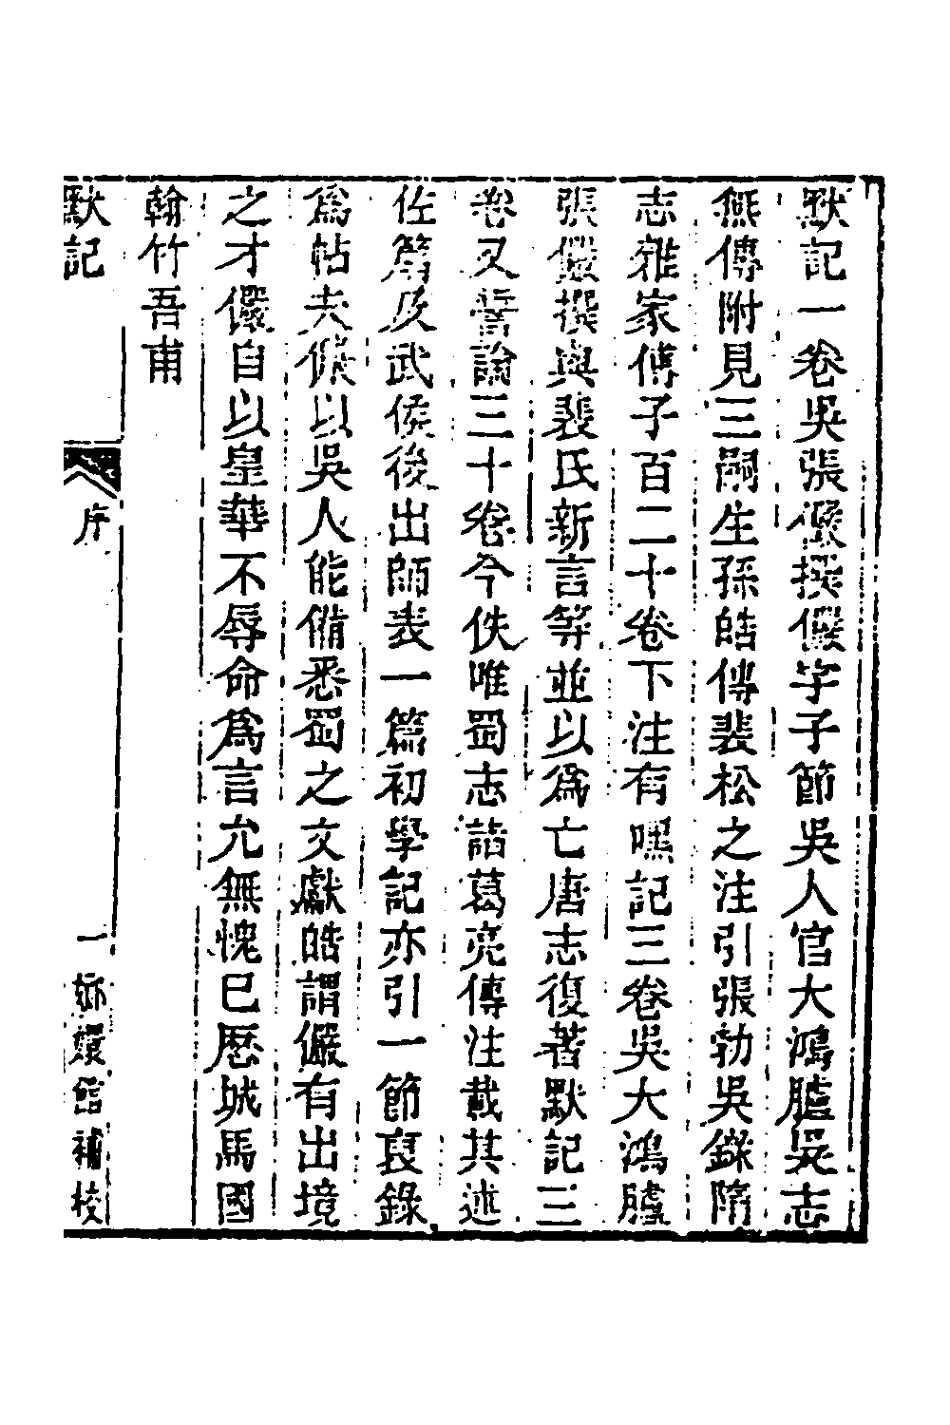 默記一卷吳張儼撰儼字子節吳人官大鴻臚吳志
無傳附見三嗣主孫皓傳裴松之注引張勃吳錄隋
志雜家傅子百二十卷下注有嘿記三卷吳大鴻臚
張儼撰與裴氏新言等並以爲亡唐志復著默記三
卷又誓論三十卷今佚唯蜀志諸葛亮傳注載其述
佐篇及武侯後出師表一篇初學記亦引一節裒錄
爲帖夫儼以吳人能備悉蜀之文獻皓謂儼有出境
之才儼自以皇華不辱命爲言允無愧已歷城馬國
翰竹吾甫
默記
序
一
嫏嬛館補校